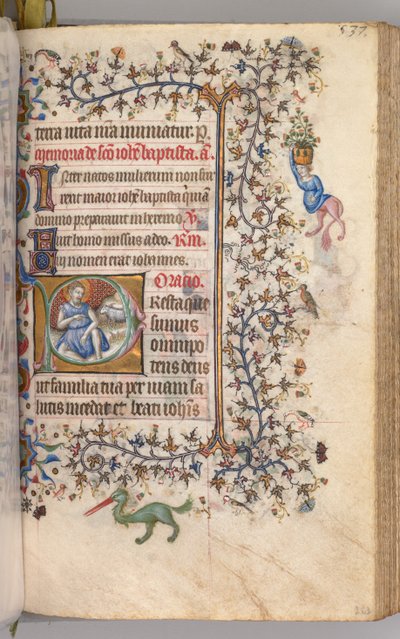 537.
terra uita nr̄a muniatur. P
Memoria de sc̄o ioh̄e baptista. a͞.
Inter natos mulierum non sur
rexit maior ioh̄e baptista qui uiam
domino preparauit in heremo. V̄
Fuit homo missus a deo. R̄m̄
Cui nomen erat iohannes.
Oratio.
Presta que
sumus
omnipo
tens deus
ut familia tua per uiam sa
lutis incedat et beati ioh̄is